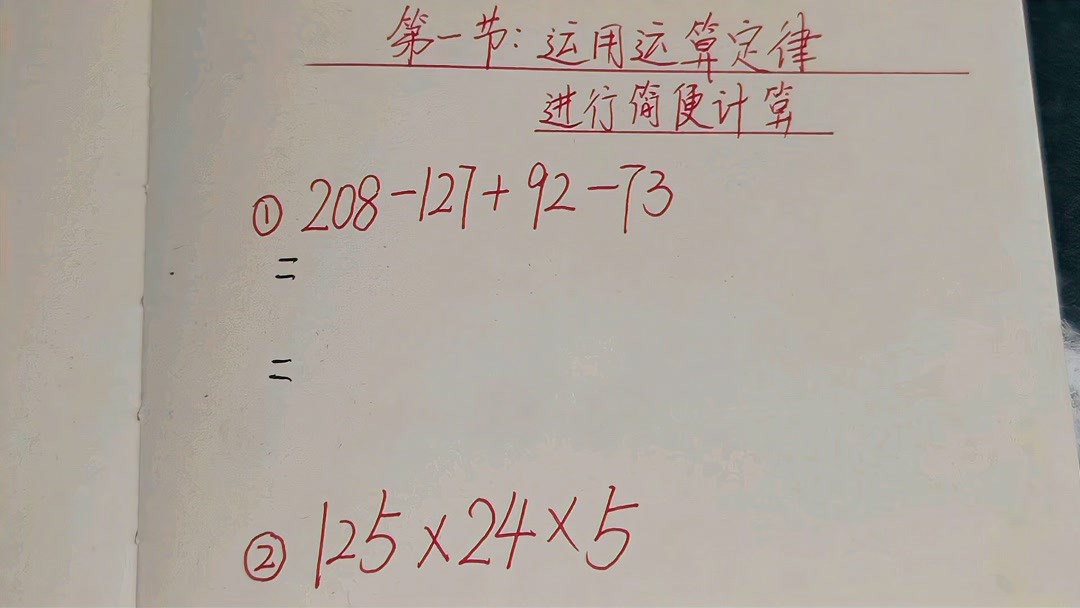 第一节:运用运算定律
进行简便计算
① 208-127+92-73
=
=
② 125×24×5